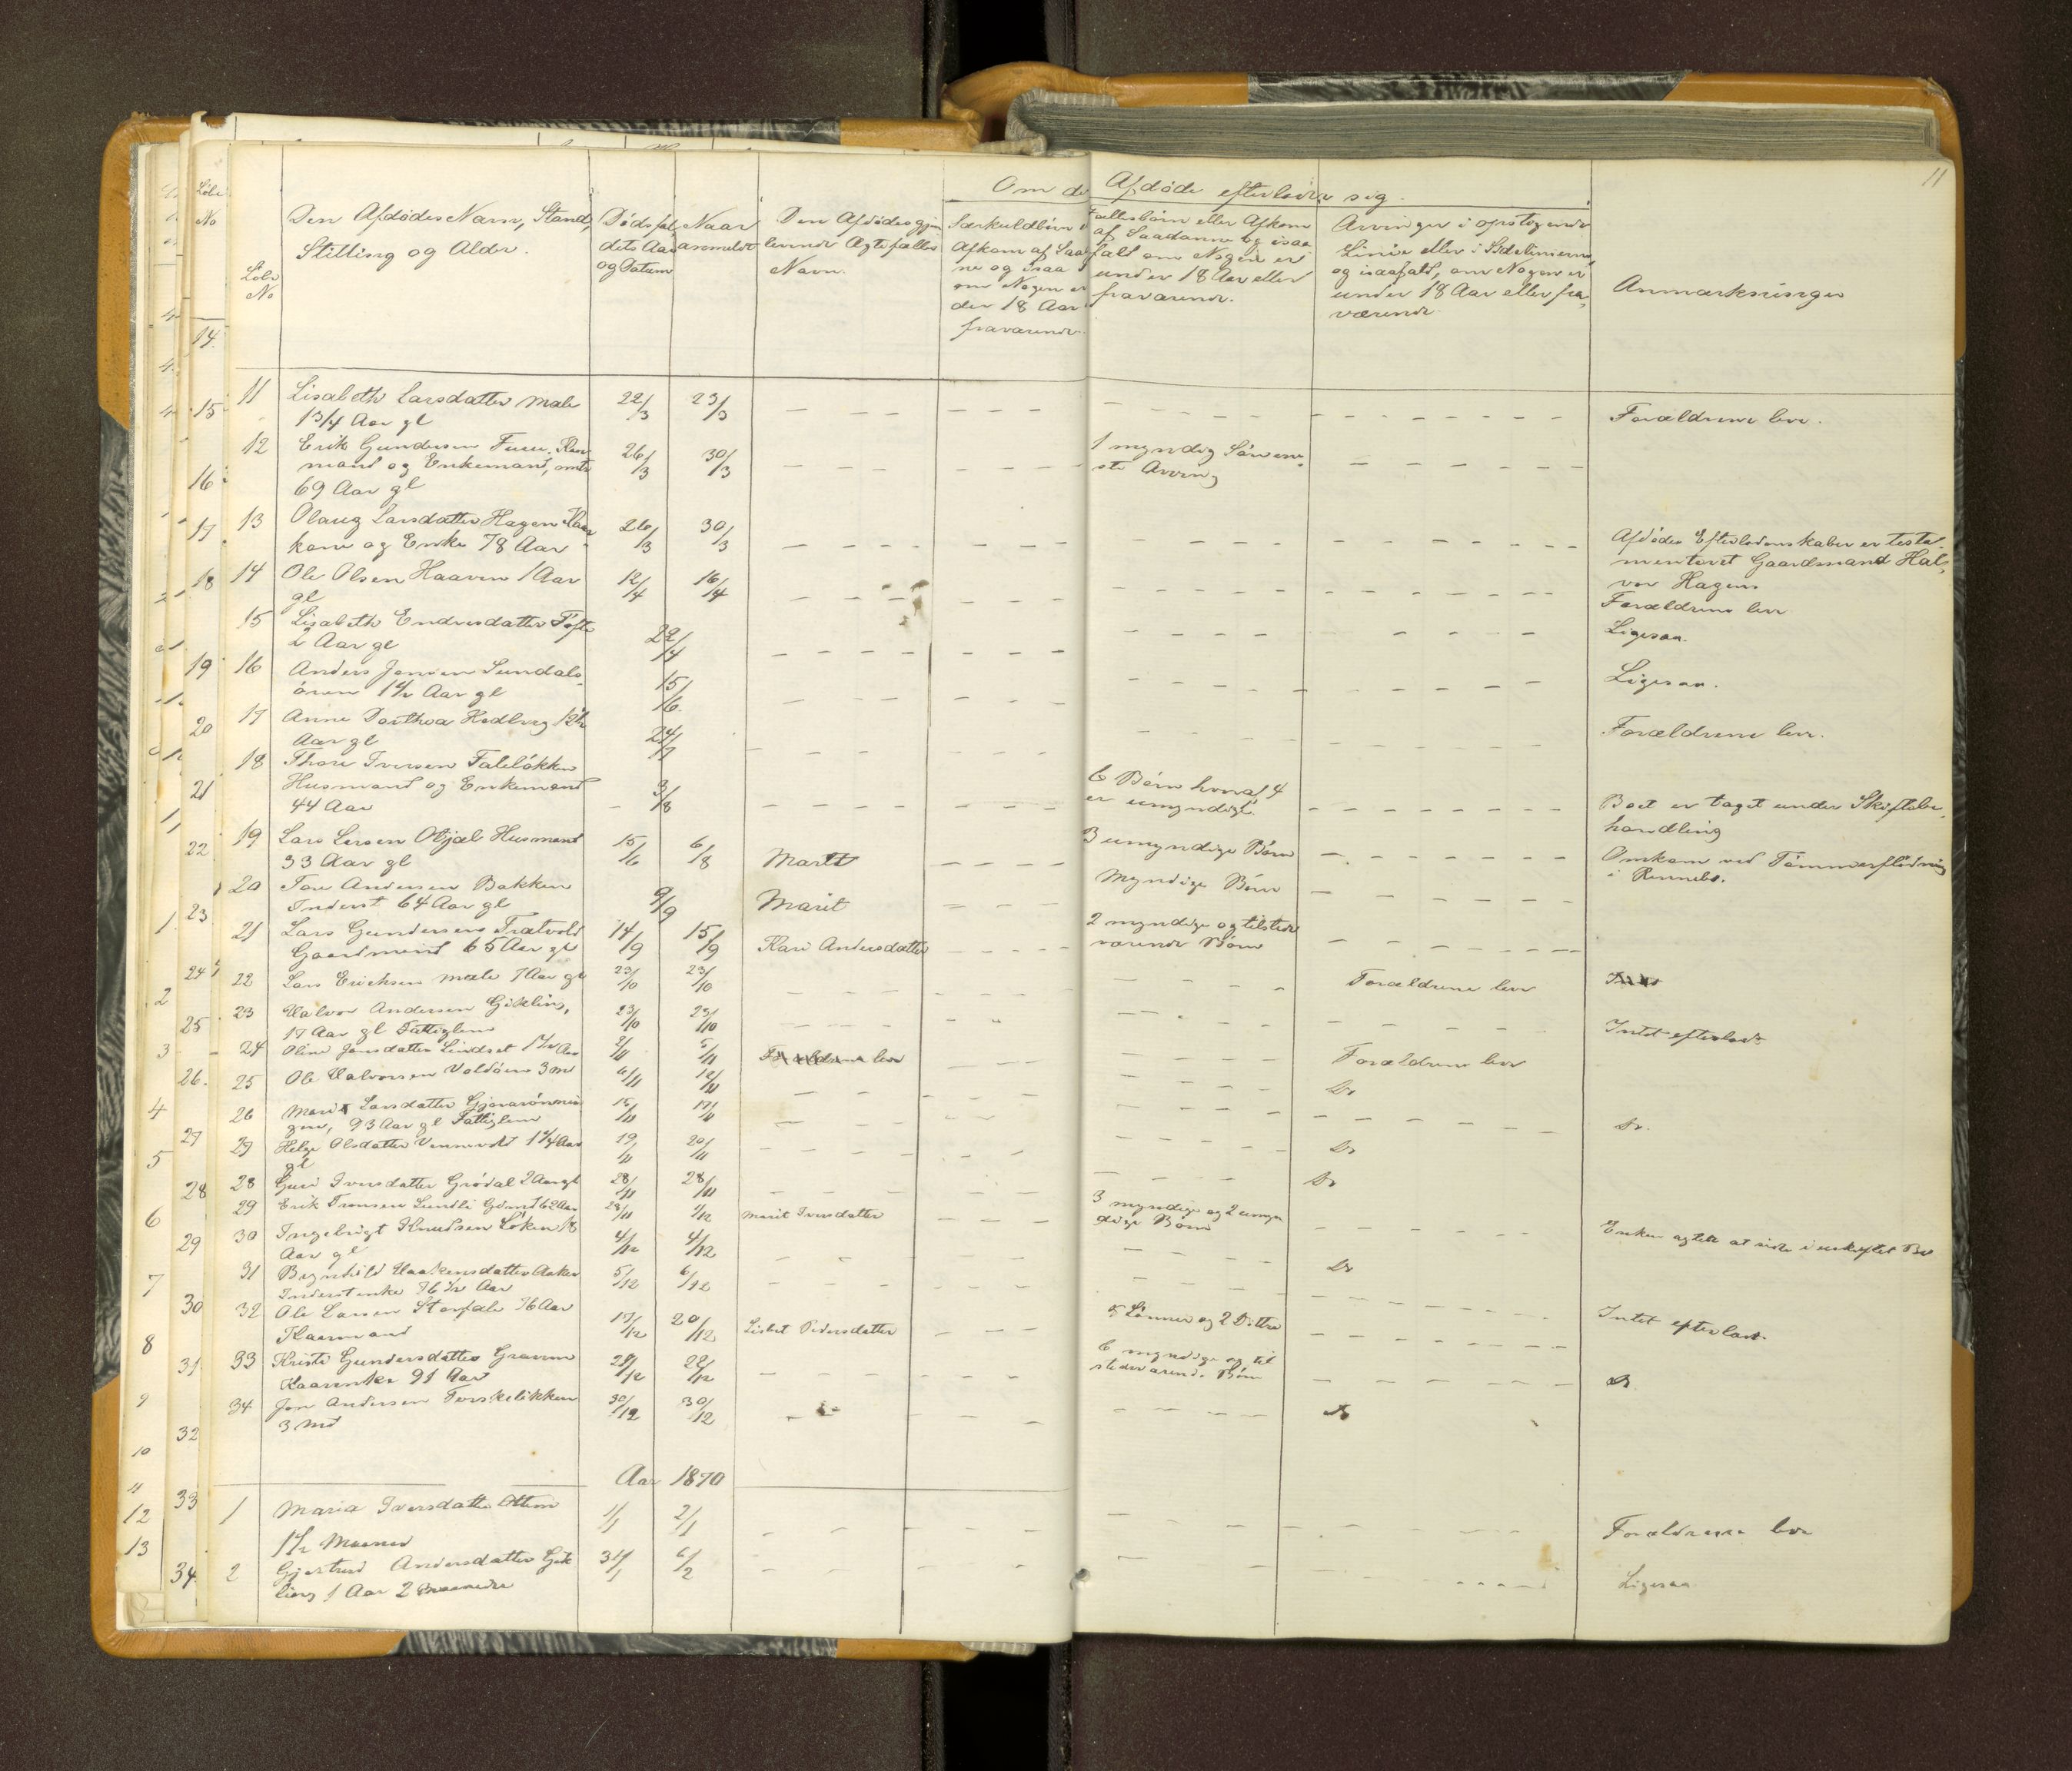 11
Om de Afdøde efterlader sig.
Løbe No
Den Afdødes Navn, Stand, Stilling og Alder.
Dødsfaldets Aar og Datum
Naar anmeldt
Den Afdødes gjenlevende Ægtefælles Navn.
Særkuldbørn
Afkom af Saa
ne og isaa
om Nogen er
der 18 Aar
fraværende.
Fællesbørn eller Afkom
af Saadanne og isaa
fald om Nogen er
under 18 Aar eller
fraværende.
Arvinger i opstigende
Linie eller i Sidelinierne,
og isaafald, om Nogen er
under 18 Aar eller fra,
værende
Anmærkninger
11 Lisabeth Larsdatter Mæle 22/3 23/3 Forældrene lever.
1 3/4 Aar gl
12 Erik Gundersen Furu, Kaar 26/3 30/3 1 myndig Søn ene
mand og Enkemand, omtr ste Arving
69 Aar gl
13 Olaug Larsdatter Hagen Kaar 26/3 30/3 Afdødes Efterladenskaber er testa
kone og Enke 78 Aar menteret Gaardmand Hal,
vor Hagen
14 Ole Olsen Haaven 1 Aar 12/4 16/4 Forældrene lever
gl
15 Lisabeth Endresdatter Tofte 22/4 Ligesaa.
2 Aar gl
16 Anders Jonsen Sundals 15/6 Ligesaa.
øren 1 1/2 Aar gl
17 Anne Dorthea Hedberg 12 1/2 24/7 Forældrene lever.
Aar gl
18 Thore Iversen Faleløkken
Husmand og Enkemand 3/8 6 Børn hvoraf 4
44 Aar er umyndige. Boet er taget under Skiftebe
handling
19 Lars Larsen Husmand 15/6 6/8 Marit 3 umyndige Børn Omkom ved Tømmerflødning
33 Aar gl i Rennebo.
20 Tore Andersen Bakken 9/9 Marit Myndige Børn
Inderst 64 Aar gl
21 Lars Gundersen Trætvold 14/9 15/9 Kari Andersdatter 2 myndige og tilstede
Gaardmand 65 Aar gl værende Børn
22 Lars Erichsen Mæle 7 Aar gl 23/10 23/10 Forældrene lever
23 Halvor Andersen Gikling, 23/10 23/10 Intet efterladt
17 Aar gl Fattiglem
24 Oline Jonsdatter Lindset 1 1/2 Aar 2/11 5/11 Forældrene lever Forældrene lever
25 Ole Halvorsen Valdøen 3 md 6/11 12/11 Do
26 Marit Larsdatter 15/11 17/11 Do.
gen, 93 Aar gl Fattiglem
27 Helge Olsdatter Vennevold 1 1/4 Aar 19/11 20/11 Do
gl
28 Guri Iversdatter Grødal 2 Aar gl 28/11 28/11 Do
29 Erik Tronsen Lundli Gdmd 62 Aar 28/11 2/12 Marit Iversdatter 3 myndige og 2 umyn
dige Børn Enken agter at sidde i uskiftet Bo
30 Ingebrigt Knudsen Løken 18 4/12 4/12 Do
Aar gl
31 Brynhild Haakensdatter Aaker 5/12 6/12 Intet efterladt
Inderst enke 76 1/2 Aar
32 Ole Larsen Storfale 76 Aar 17/12 20/12 Lisbet Pedersdatter 5 Sønner og 2 Døttre
Kaarmand
33 Kristi Gundersdatter Graven 21/12 22/12 6 myndige og til
Kaarenke 91 Aar stedeværende Børn Do
34 Jon Andersen Torskeløkken 30/12 30/12 Do
3 Md
Aar 1870
1 Maria Iversdatter Ottem 1/1 2/1 Forældrene lever
1 1/2 Maaned
2 Gjertrud Andersdatter Gik 31/1 6/2 Ligesaa
ling 1 Aar 2 Maaneder
Løbe No
14
15
16
17
18
19
20
21
22
23
24
25
26
27
28
29
30
31
32
33
34
1
2
3
4
5
6
7
8
9
10
11
12
13